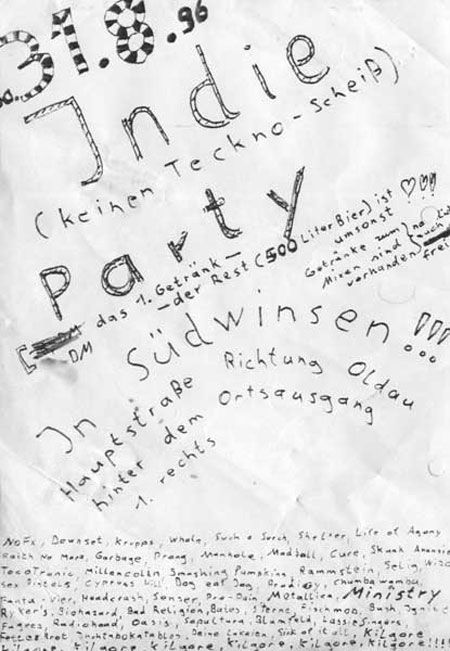 31.8.96
Indie
(keinen Teckno-Scheiß)
Party
das 1. Getränk -
- der Rest (500 Liter Bier) ist umsonst
Getränke zum
Mixen sind
vorhanden
auch
frei
DM
In Südwinsen!!!
Hauptstraße Richtung Oldau
hinter dem Ortsausgang
1. rechts
NOFX, Downset, Krupps, Whale, Such a Surch, Shelter, Life of Agony
Faith No More, Garbage, Prong, Manhole, Madball, Cure, Skunk Anansie
Tocotronic, Millencolin, Smashing Pumpkins, Rammstein, Selig, Wizo
Sex Pistols, Cypress Hill, Dog eat Dog, Prodigy, Chumbawamba,
Fanta-Vier, Headcrash, Senser, Pro-Pain, Metallica, Ministry
Ryker's, Biohazard, Bad Religion, Bates, Sterne, Fischmob, Bush, Ignite
Fugees, Radiohead, Oasis, Sepultura, Blumfeld, Lassie Singers,
Inchtabokatables, Deine Lakaien, Sick of it all, Kilgore
Kilgore, Kilgore, Kilgore, Kilgore, Kilgore!!!!